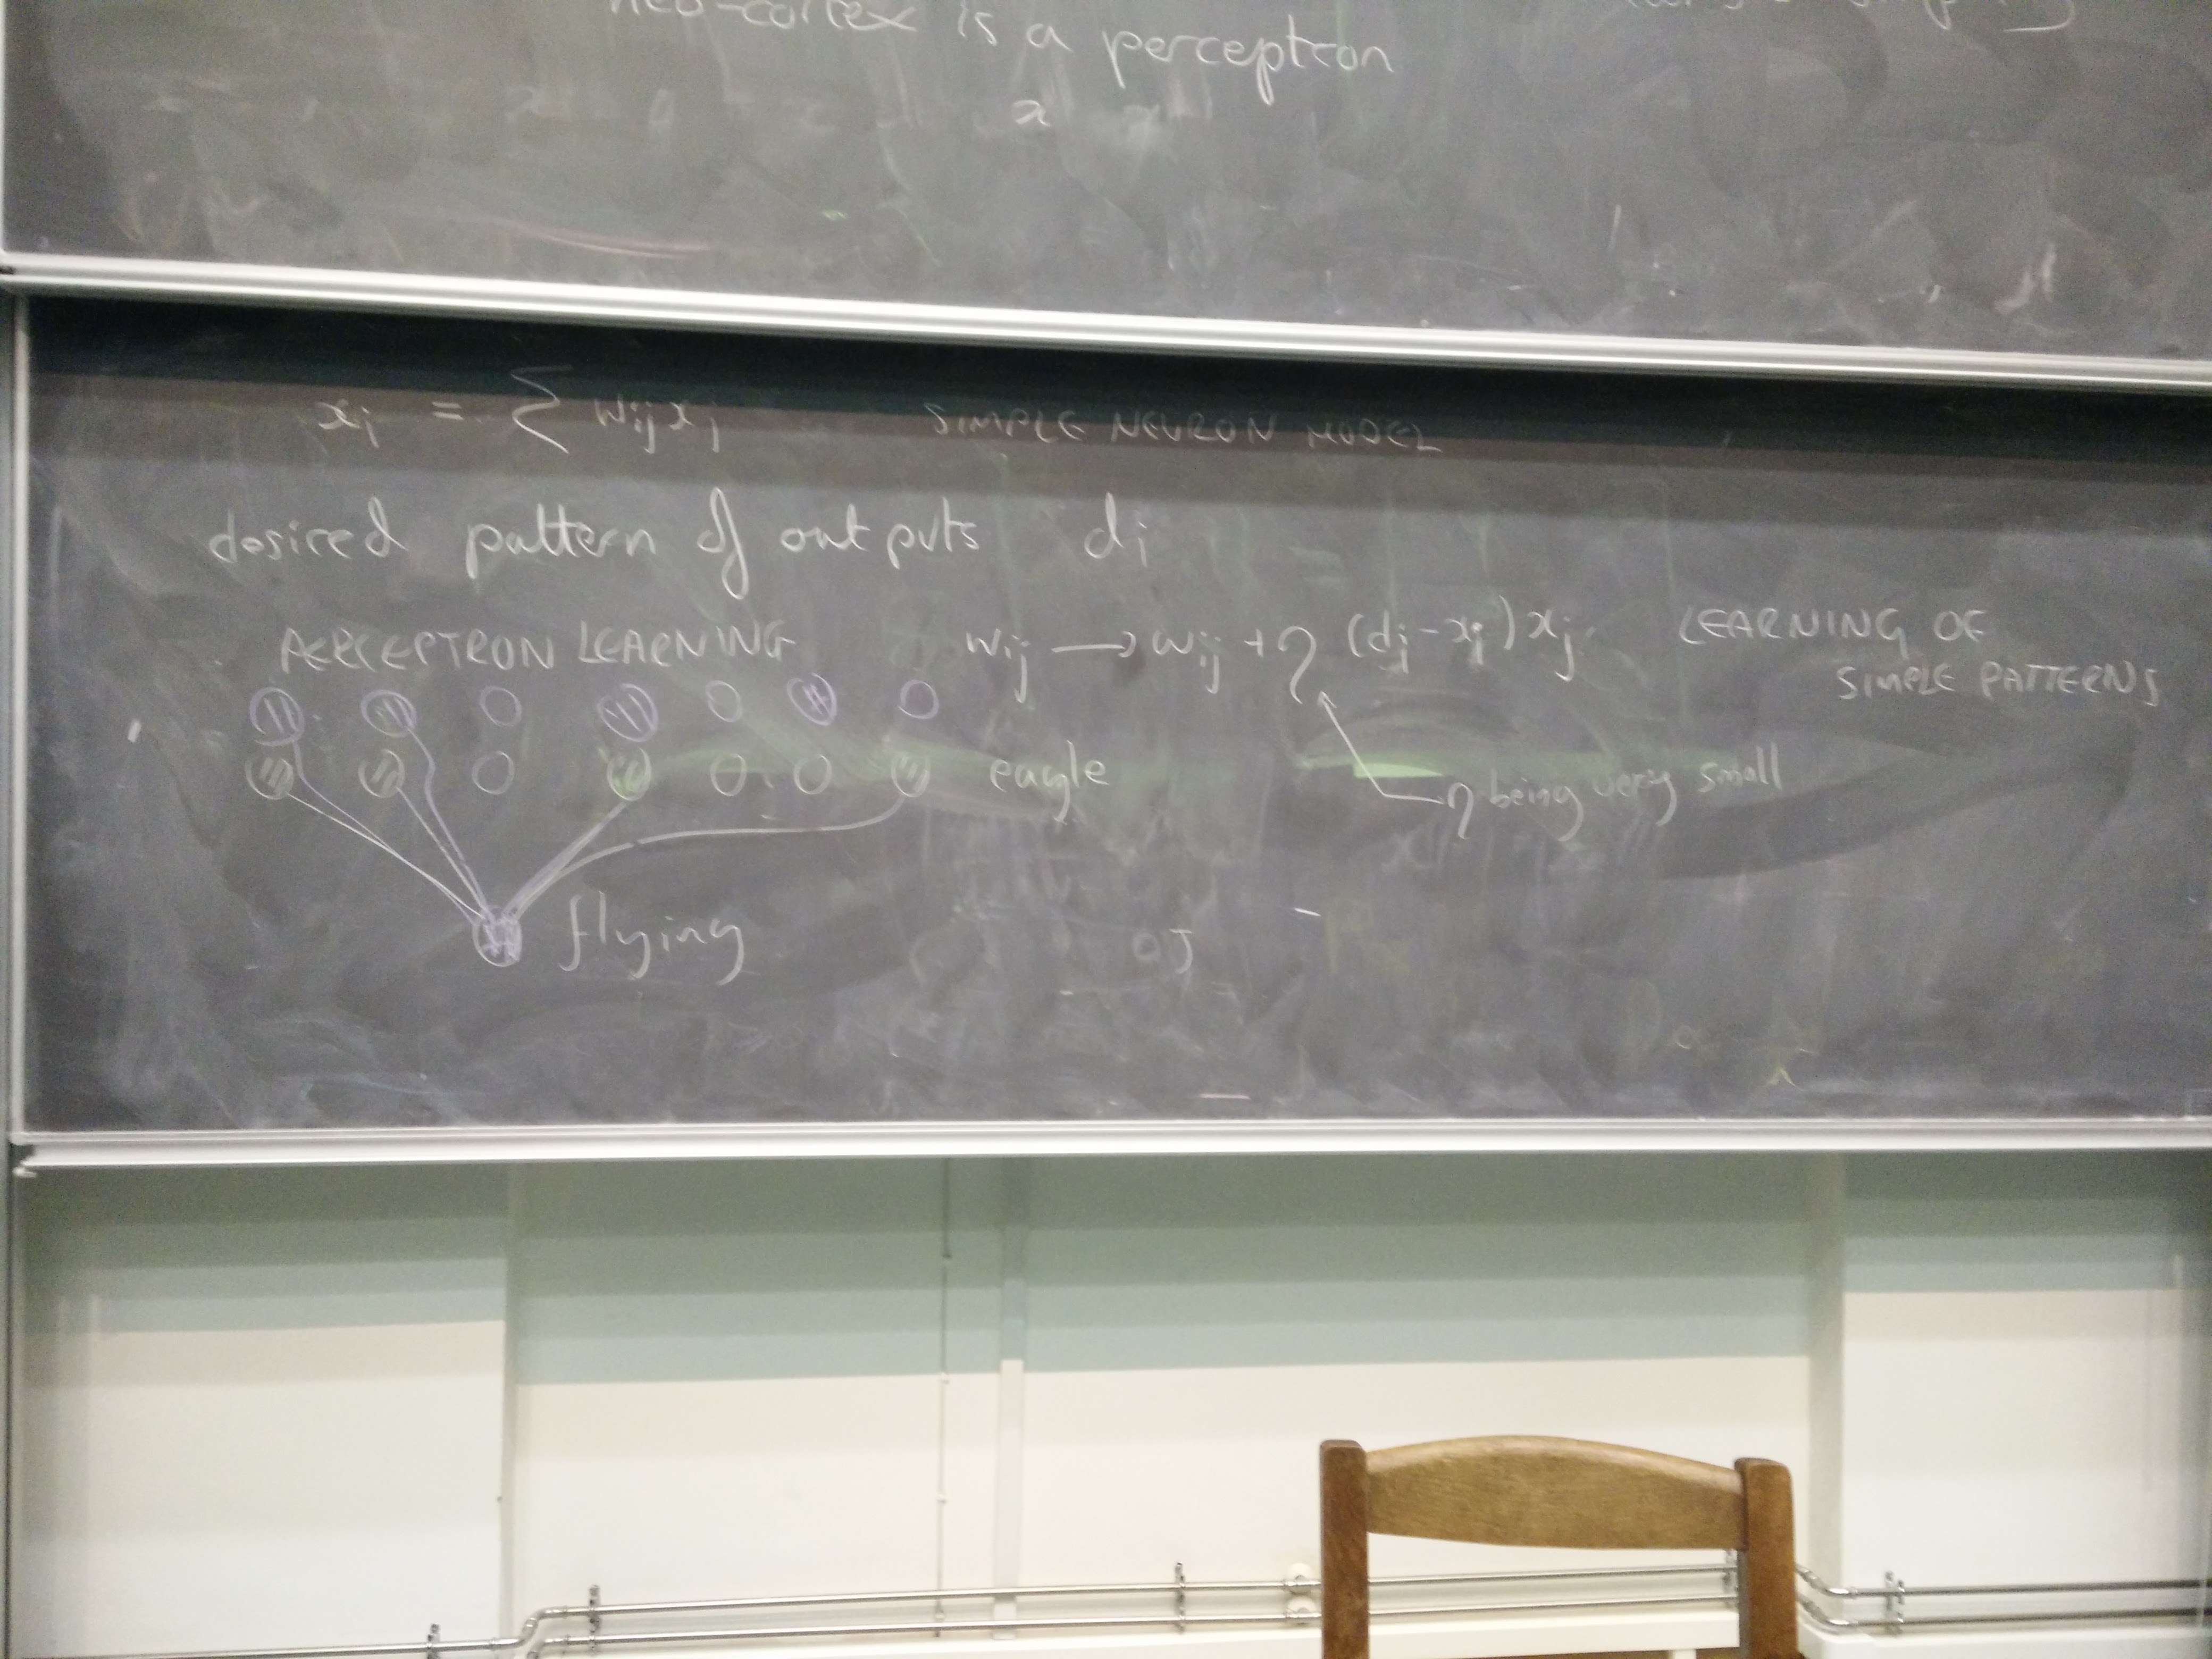 neo-cortex is a perceptron
x_i = Σ w_ij x_j SIMPLE NEURON MODEL
desired pattern of outputs d_i
PERCEPTRON LEARNING w_ij → w_ij + η (d_i - x_i) x_j LEARNING OF
SIMPLE PATTERNS
eagle
η being very small
flying